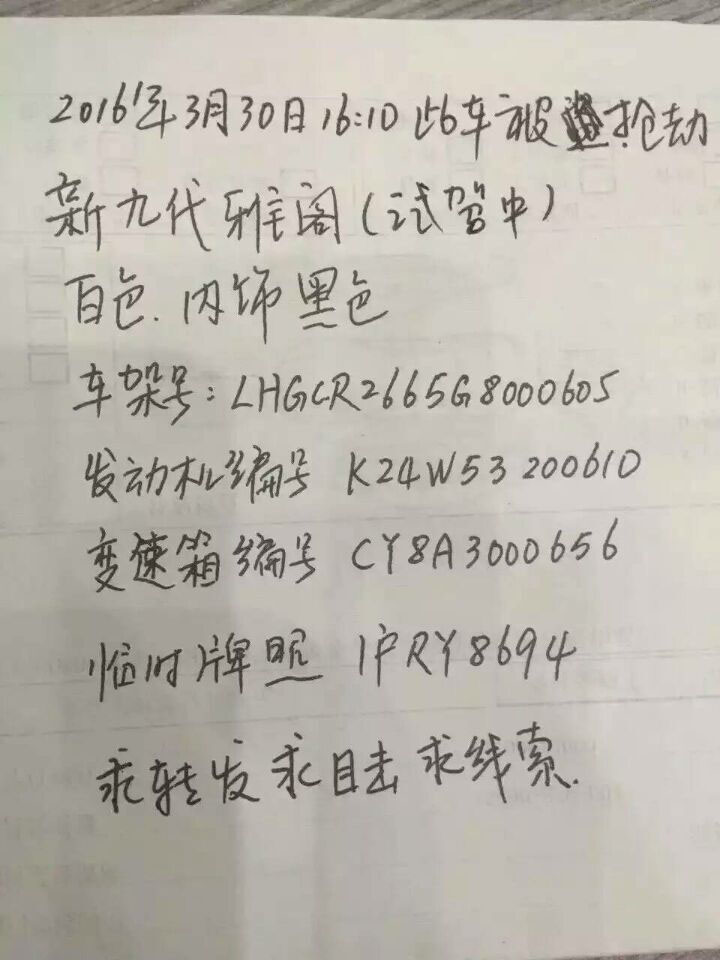 2016年3月30日16:10此车被抢劫
新九代雅阁(试驾中)
白色.内饰黑色
车架号:LHGCR2665G8000605
发动机编号 K24W53200610
变速箱编号 CY8A3000656
临时牌照 沪RY8694
求转发求目击求线索.